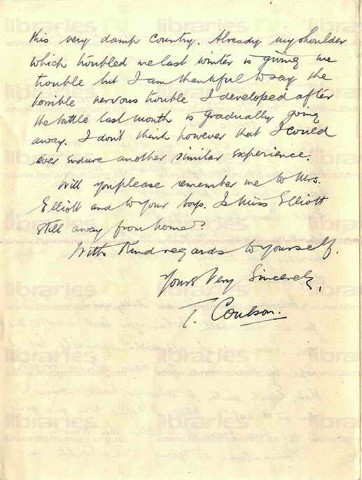 this very damp country. Already my shoulder
which troubled me last winter is giving me
trouble but I am thankful to say the
horrible nervous trouble I developed after
the battle last month is gradually going
away. I don't think however that I could
ever endure another similar experience.
Will you please remember me to Mrs.
Elliott and to your boys. Is Miss Elliott
still away from home?
With Kind regards to yourself.
Yours Very Sincerely,
T. Coulson.
libraries